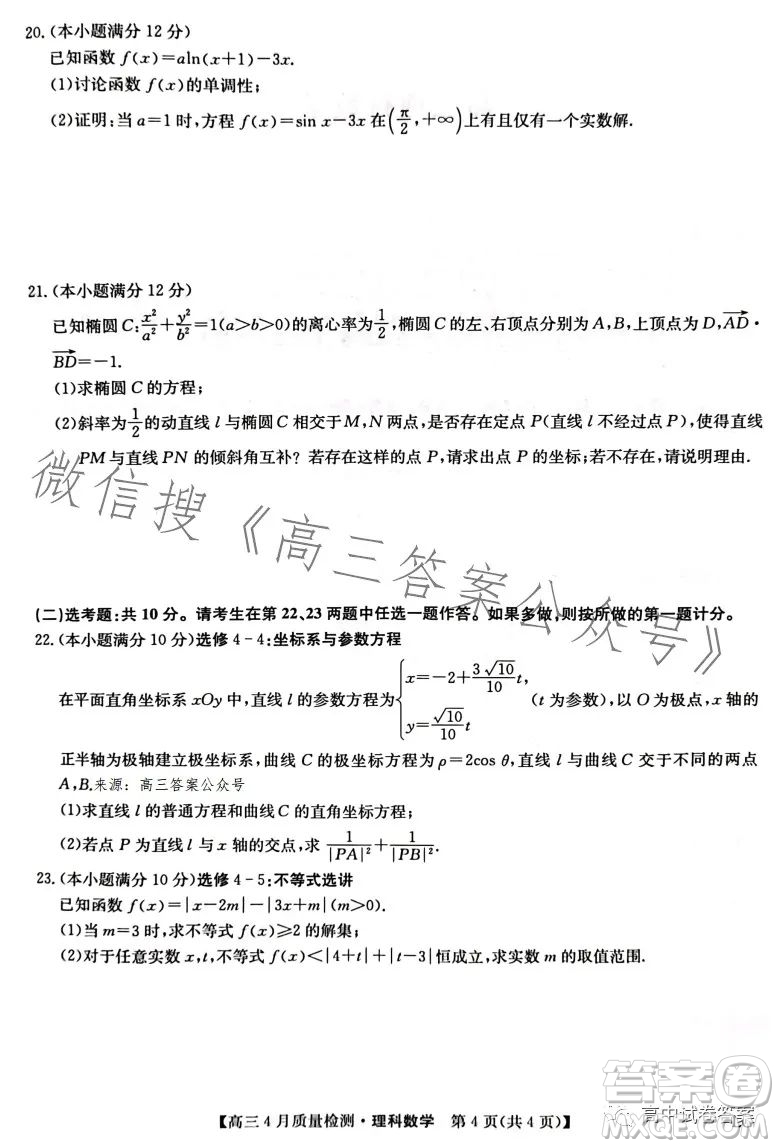 20.(本小题满分12分)
已知函数 f(x)=aln(x+1)-3x.
(1)讨论函数 f(x)的单调性;
(2)证明:当 a=1 时,方程 f(x)=sin x-3x 在(π/2,+∞)上有且仅有一个实数解.
21.(本小题满分12分)
已知椭圆 C:x²/a²+y²/b²=1(a>b>0)的离心率为1/2,椭圆 C 的左、右顶点分别为 A,B,上顶点为 D,AD→·
BD→=-1.
(1)求椭圆 C 的方程;
(2)斜率为1/2的动直线 l 与椭圆 C 相交于 M,N 两点,是否存在定点 P(直线 l 不经过点 P),使得直线
PM 与直线 PN 的倾斜角互补?若存在这样的点 P,请求出点 P 的坐标;若不存在,请说明理由.
微信搜《高三答案公众号》
(二)选考题:共10分。请考生在第22、23两题中任选一题作答。如果多做,则按所做的第一题计分。
22.(本小题满分10分)选修4-4:坐标系与参数方程
在平面直角坐标系 xOy 中,直线 l 的参数方程为{x=-2+3√10/10 t, y=√10/10 t (t 为参数),以 O 为极点,x 轴的
正半轴为极轴建立极坐标系,曲线 C 的极坐标方程为 ρ=2cos θ,直线 l 与曲线 C 交于不同的两点
A,B.来源:高三答案公众号
(1)求直线 l 的普通方程和曲线 C 的直角坐标方程;
(2)若点 P 为直线 l 与 x 轴的交点,求 1/|PA|²+1/|PB|².
23.(本小题满分10分)选修4-5:不等式选讲
已知函数 f(x)=|x-2m|-|3x+m|(m>0).
(1)当 m=3 时,求不等式 f(x)≥2 的解集;
(2)对于任意实数 x,t,不等式 f(x)<|4+t|+|t-3|恒成立,求实数 m 的取值范围.
【高三4月质量检测·理科数学 第4页(共4页)】
答案卷
高中试卷答案